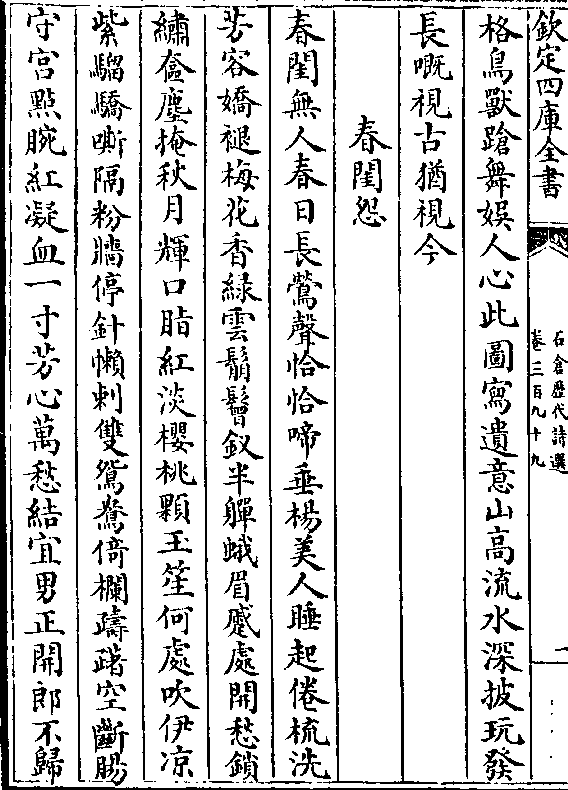 欽定四庫全書
石倉歷代詩選
卷三百九十九
一
格鳥獸蹌舞娯人心此圖寫遺意山高流水深披玩發
長嘅視古猶視今
春閨怨
春閨無人春日長鶯聲恰恰啼垂楊美人睡起倦梳洗
芳容嬌褪梅花香緑雲鬅鬙釵半嚲蛾眉蹙處開愁鎖
繡奩塵掩秋月輝口脂紅淡櫻桃顆玉笙何處吹伊凉
紫騮驕嘶隔粉牆停針懶刺雙鴛鴦倚欄躊躇空斷腸
守宫㸃腕紅凝血一寸芳心萬愁結宜男正開郎不歸